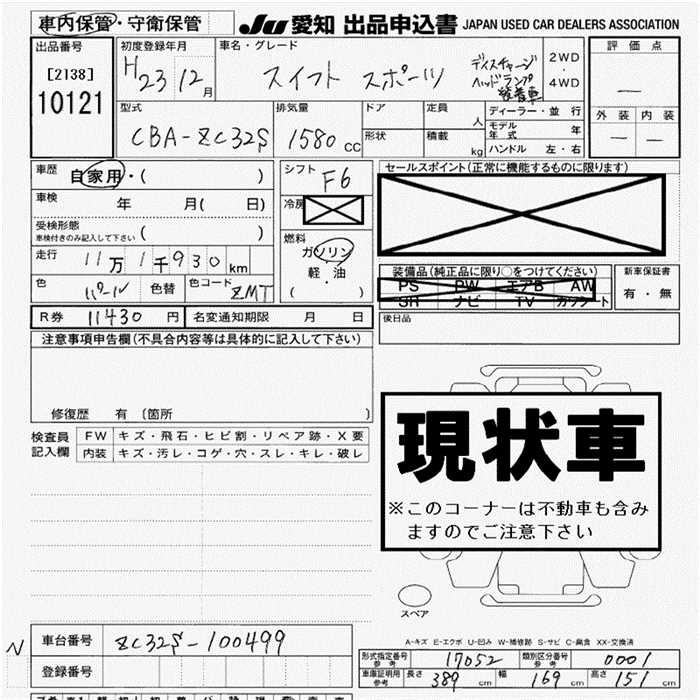 車内保管・守衛保管 JU愛知 出品申込書 JAPAN USED CAR DEALERS ASSOCIATION
出品番号 初度登録年月 車名・グレード 2WD 評価点
[2138] H23 12月 スイフト スポーツ ディスチャージ ・
10121 ヘッドランプ 4WD —
装着車
型式 排気量 ドア 定員 人 ディーラー・並行 外装 内装
CBA-ZC32S 1580CC 形状 積載 kg モデル年式 年 — —
ハンドル 左・右
車歴 自家用・( ) シフト F6 セールスポイント(正常に機能するものに限ります)
車検 年 月( 日) 冷房
受検形態
車検付きのみ記入して下さい ( ) 燃料 ガソリン
走行 11万1千930km 軽・油 装備品(純正品に限り○をつけてください) 新車保証書
色 パール 色替 色コード ZMT ( ) PS PW エアB AW 有・無
SR ナビ TV カワシート
R券 11430円 名変通知期限 月 日 後日品
注意事項申告欄(不具合内容等は具体的に記入して下さい)
修復歴 有 〔箇所 〕
現状車
※このコーナーは不動車も含み
ますのでご注意下さい
検査員 FW キズ・飛石・ヒビ割・リペア跡・X要
記入欄 内装 キズ・汚レ・コゲ・穴・スレ・キレ・破レ
スペア
N 車台番号 ZC32S-100499 A-キズ E-エクボ U-凹み W-補修跡 S-サビ C-腐食 XX-交換済
登録番号 形式指定番号参考 17052 類別区分番号参考 0001
車庫証明用参考 長さ 389cm 幅 169cm 高さ 151cm